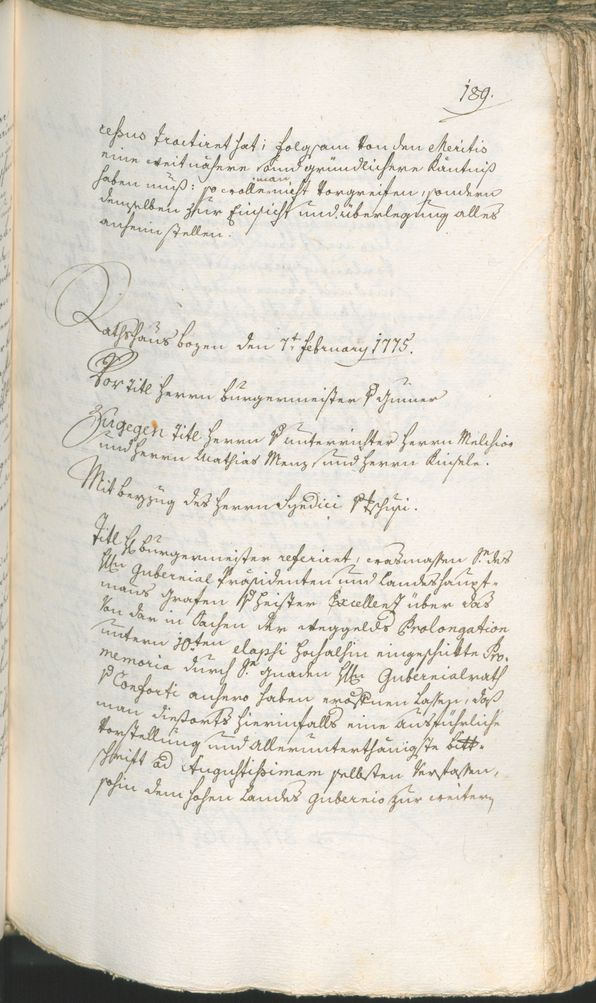 189.
cessus tractiret hat; folgsam von den Meritis
eine weit nähere und gründlichere Käntniß
haben muß: so wolle man nicht vorgreifen, sondern
demselben zur Einsicht und überlegung alles
anheim stellen.
Rathshaus bozen den 7t february 1775.
Vor Titl Herrn burgermeister v Gumer
Zugegen Titl Herrn v unterrichter Herrn Melchior
und Herrn Mathias Menz, und Herrn Kinsele.
Mit beyzug des Herrn Syndici v Tschusi.
Titl H burgermeister referiret, wasmassen Sr des
Hrn Gubernial Präsidenten und Landeshaupt-
mans Grafen v Heister Excellenz über das
von dar in Sachen der weggelds Prolongation
untern 30ten elapsi hochalhin eingeschikte Pro-
memoria durch Sr Gnaden Hrn Gubernialrath
v Conforti anhero haben eröfnen lassen, daß
man diesorts hierinfalls eine ausführliche
Vorstellung und allerunterthänigste bitt-
schrift ad Augustissimam selbsten verfassen,
sohin dem hohen Landes Gubernio zur weitern